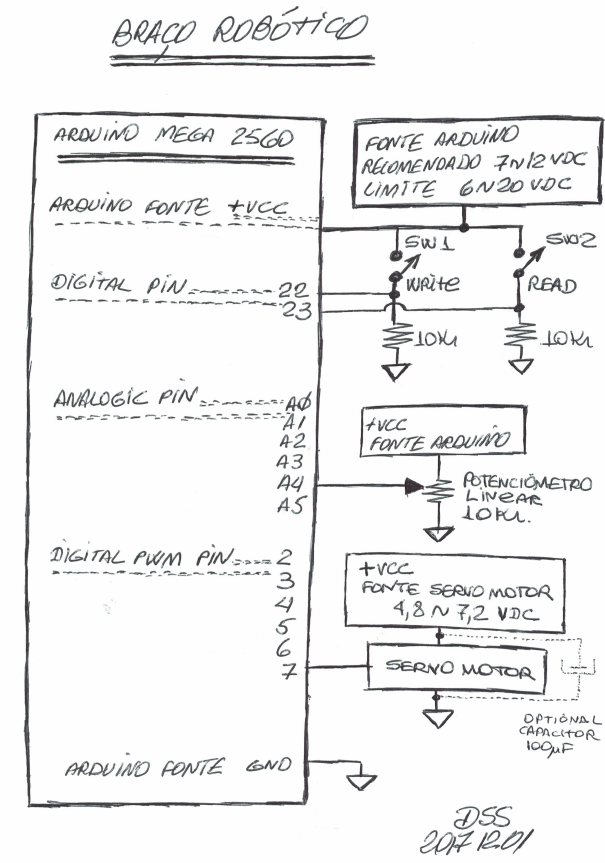 BRAÇO ROBÓTICO
ARDUINO MEGA 2560
ARDUINO FONTE +VCC
DIGITAL PIN 22
23
ANALOGIC PIN AØ
A1
A2
A3
A4
A5
DIGITAL PWM PIN 2
3
4
5
6
7
ARDUINO FONTE GND
FONTE ARDUINO
RECOMENDADO 7~12 VDC
LIMITE 6~20 VDC
SW1
WRITE
SW2
READ
10K
10K
+VCC
FONTE ARDUINO
POTENCIÔMETRO
LINEAR
10K.
+VCC
FONTE SERVO MOTOR
4,8 ~ 7,2 VDC
SERVO MOTOR
OPTIONAL
CAPACITOR
100µF
DSS
2017 12.01